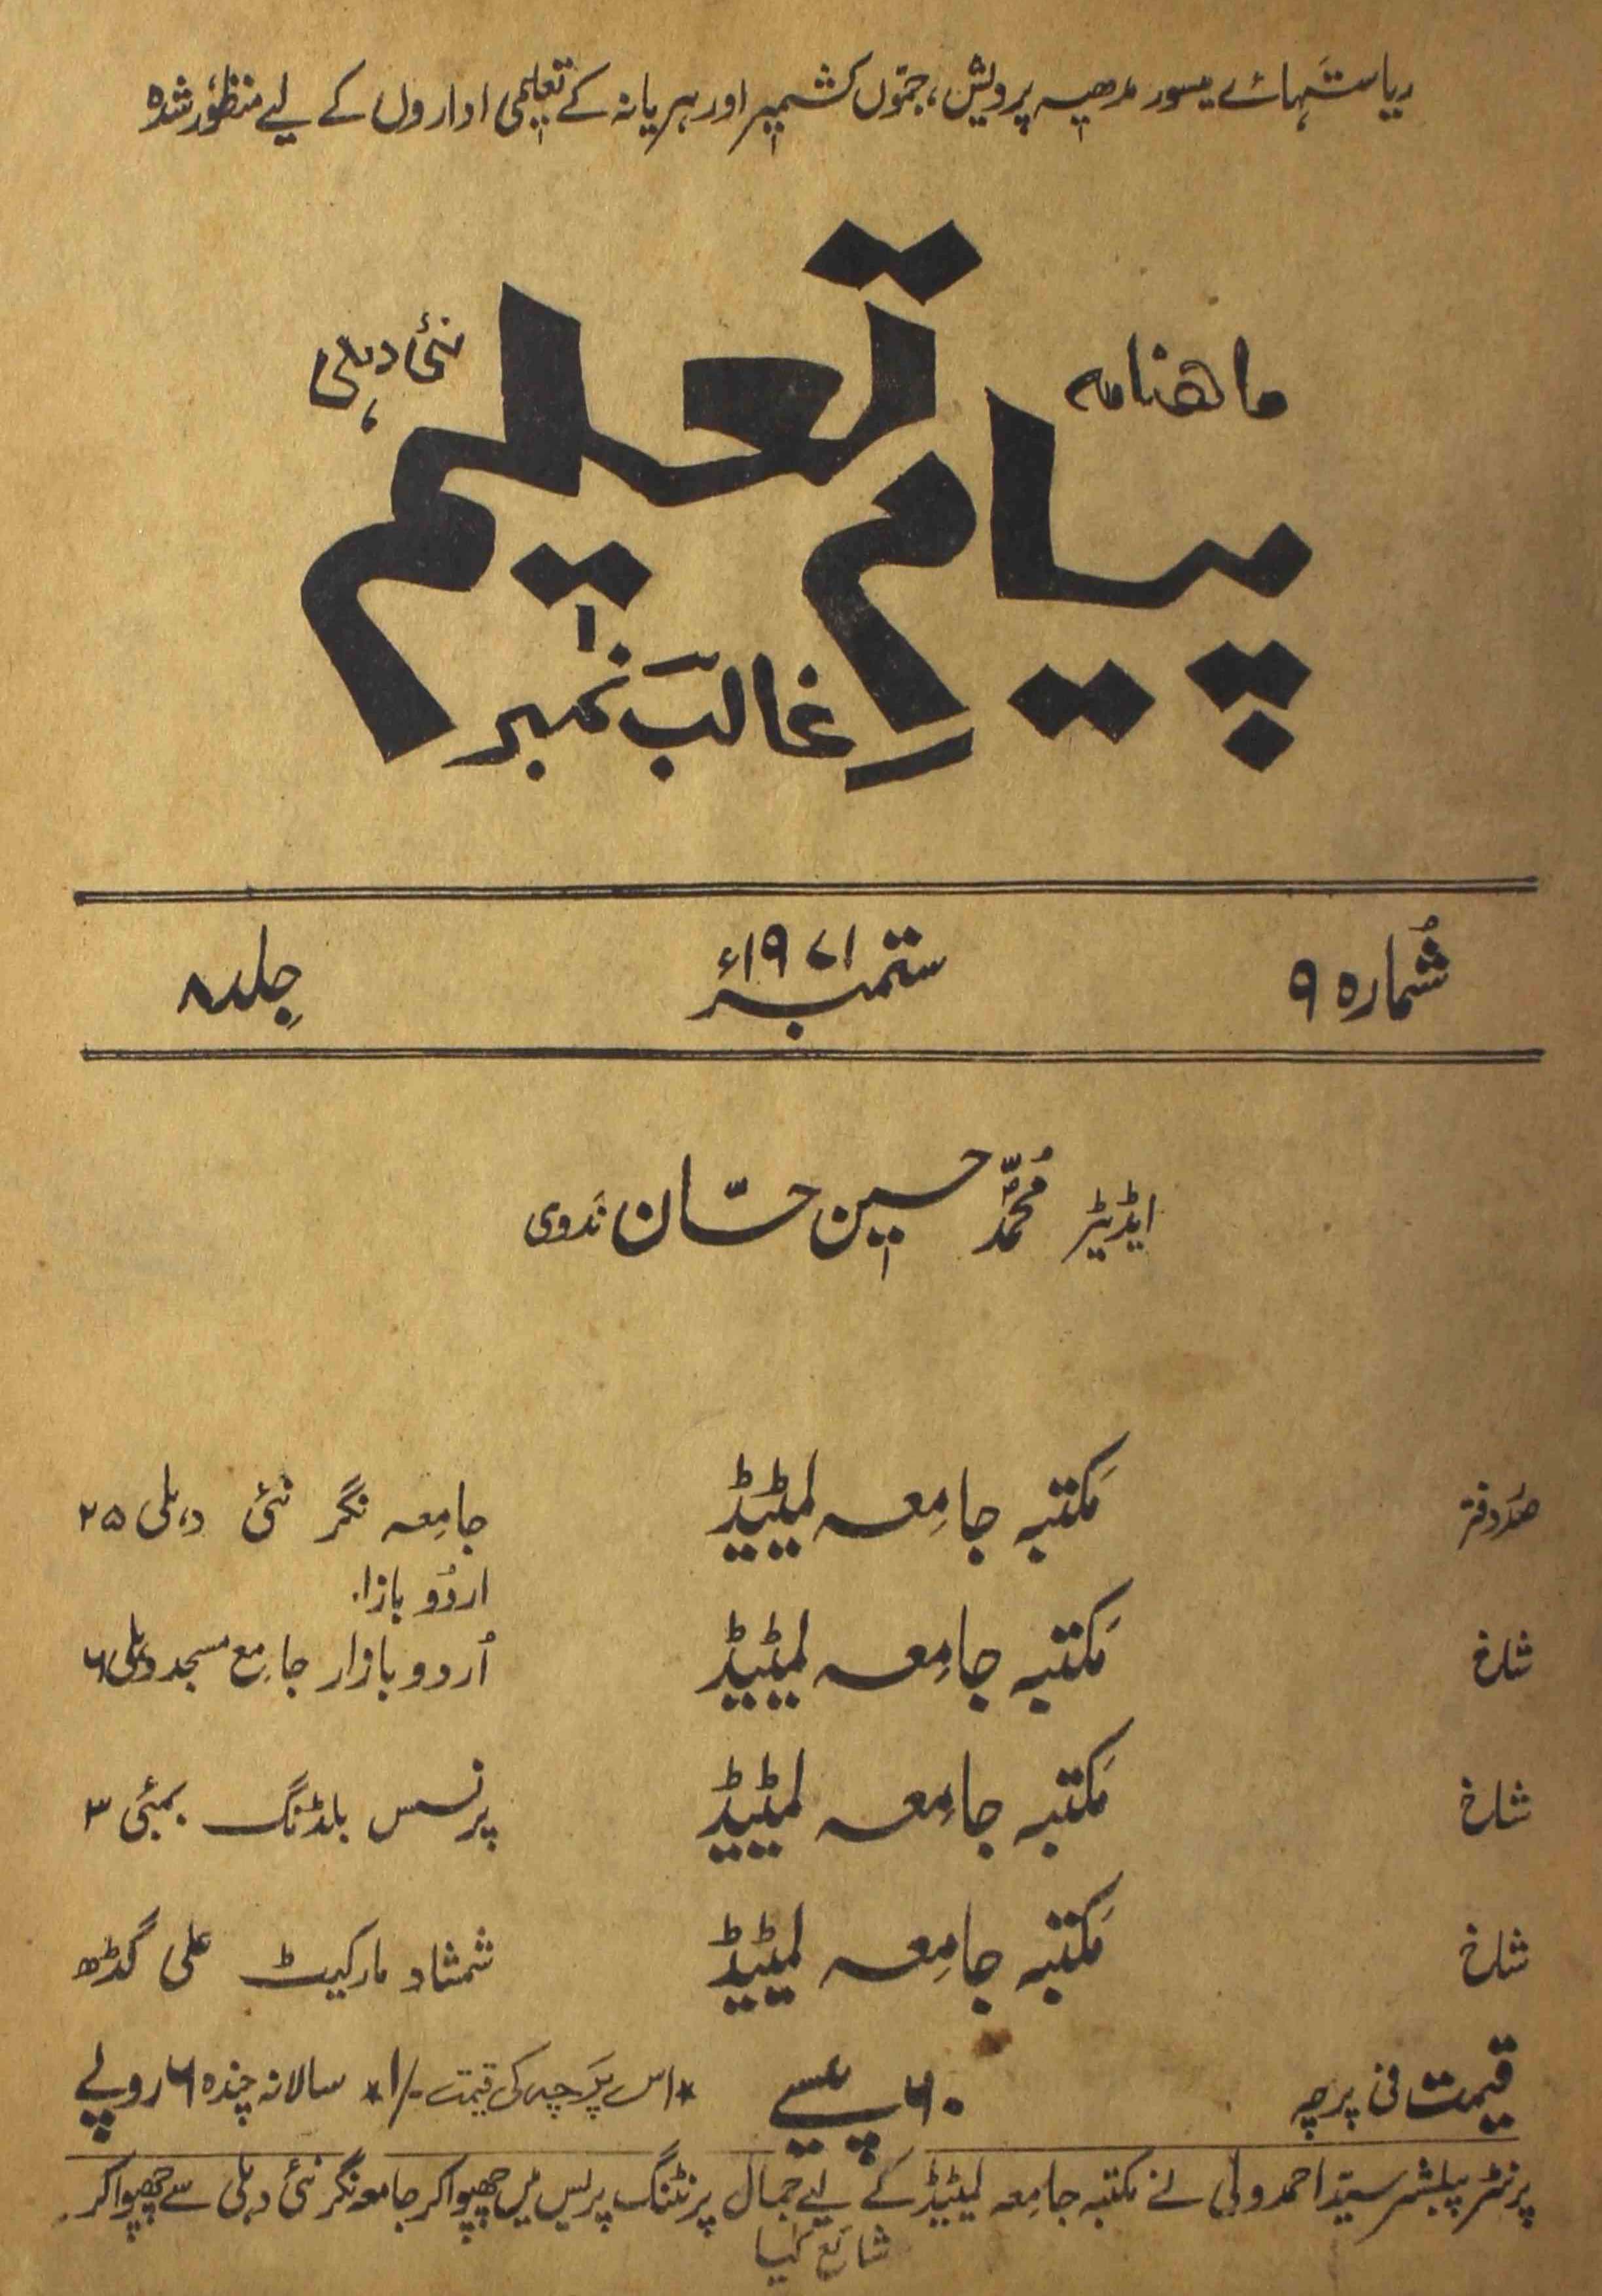 ریاستہائے میسور مدھیہ پردیش، جموّں کشمیر اور ہریانہ کے تعلیمی اداروں کے لیے منظوُر شدہ
ماھنامہ
پیامِ تعلیم
نئی دہلی
غالبؔ نمبر
شُمارہ ۹
ستمبر ۱۹۷۱ء
جِلد ۸
ایڈیٹر مُحمّدؐ حسین حسّان نَدوی
صَدر دفتر مَکتبہ جامِعہ لمیٹیڈ جامِعہ نگر نئی دہلی ۲۵
اردُو بازا.
شاخ مَکتبہ جامِعہ لمیٹیڈ اُردو بازار جامِع مسجد دہلی ۶
شاخ مَکتبہ جامِعہ لمیٹیڈ پرنسس بلڈنگ بمبئی ۳
شاخ مَکتبہ جامِعہ لمیٹیڈ شمشاد مارکیٹ علی گڈھ
قیمت فی پرچہ ۶۰ پیسے *اس پَرچہ کی قیمت ۱/-* سالانہ چندہ ۶ روپے
پرنٹر پبلشر سیّد احمد ولی نے مکتبہ جامِعہ لمیٹیڈ کے لیے جمال پرنٹنگ پریس میں چھپوا کر جامعہ نگر نئی دہلی سے چھپوا کر
شائع کیا